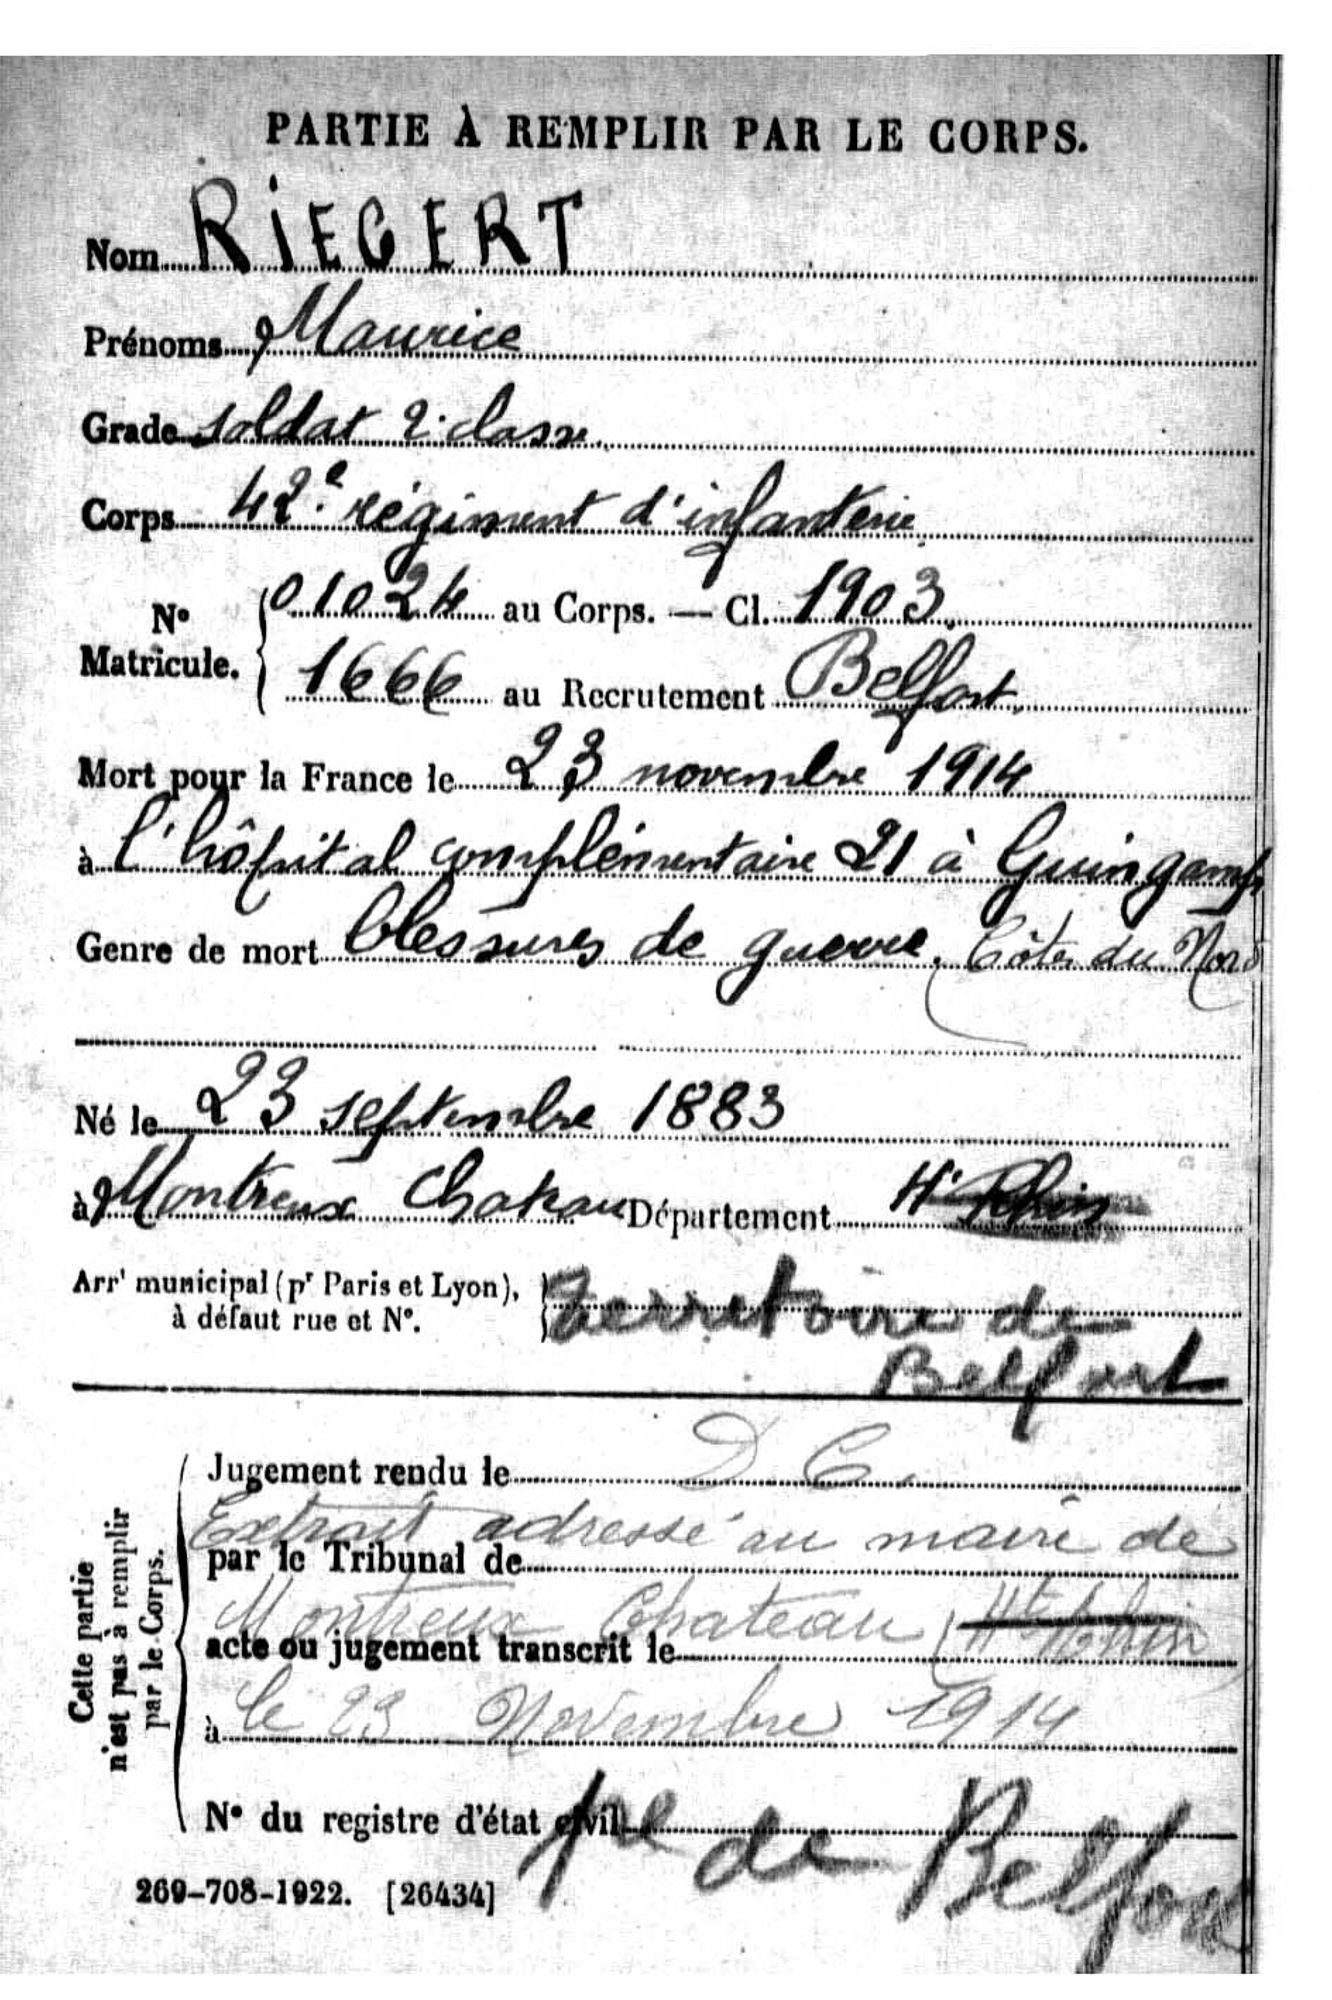 PARTIE À REMPLIR PAR LE CORPS.
Nom RIEGERT
Prénoms Maurice
Grade soldat 2e classe
Corps 42e régiment d'infanterie
No Matricule. { 01024 au Corps. — Cl. 1903.
1666 au Recrutement Belfort.
Mort pour la France le 23 novembre 1914
à l'hôpital complémentaire 21 à Guingamp
Genre de mort blessures de guerre. Côtes du Nord
Né le 23 septembre 1883
à Montreux Chateau Département Ht Rhin
Arrt municipal (pr Paris et Lyon), à défaut rue et No. } Territoire de
Belfort
Cette partie n'est pas à remplir par le Corps.
Jugement rendu le D C.
Extrait adressé au maire de
par le Tribunal de
Montreux Chateau (Ht Rhin)
acte ou jugement transcrit le
à le 23 Novembre 1914
No du registre d'état civil
de Belfort
269-708-1922. [26434]